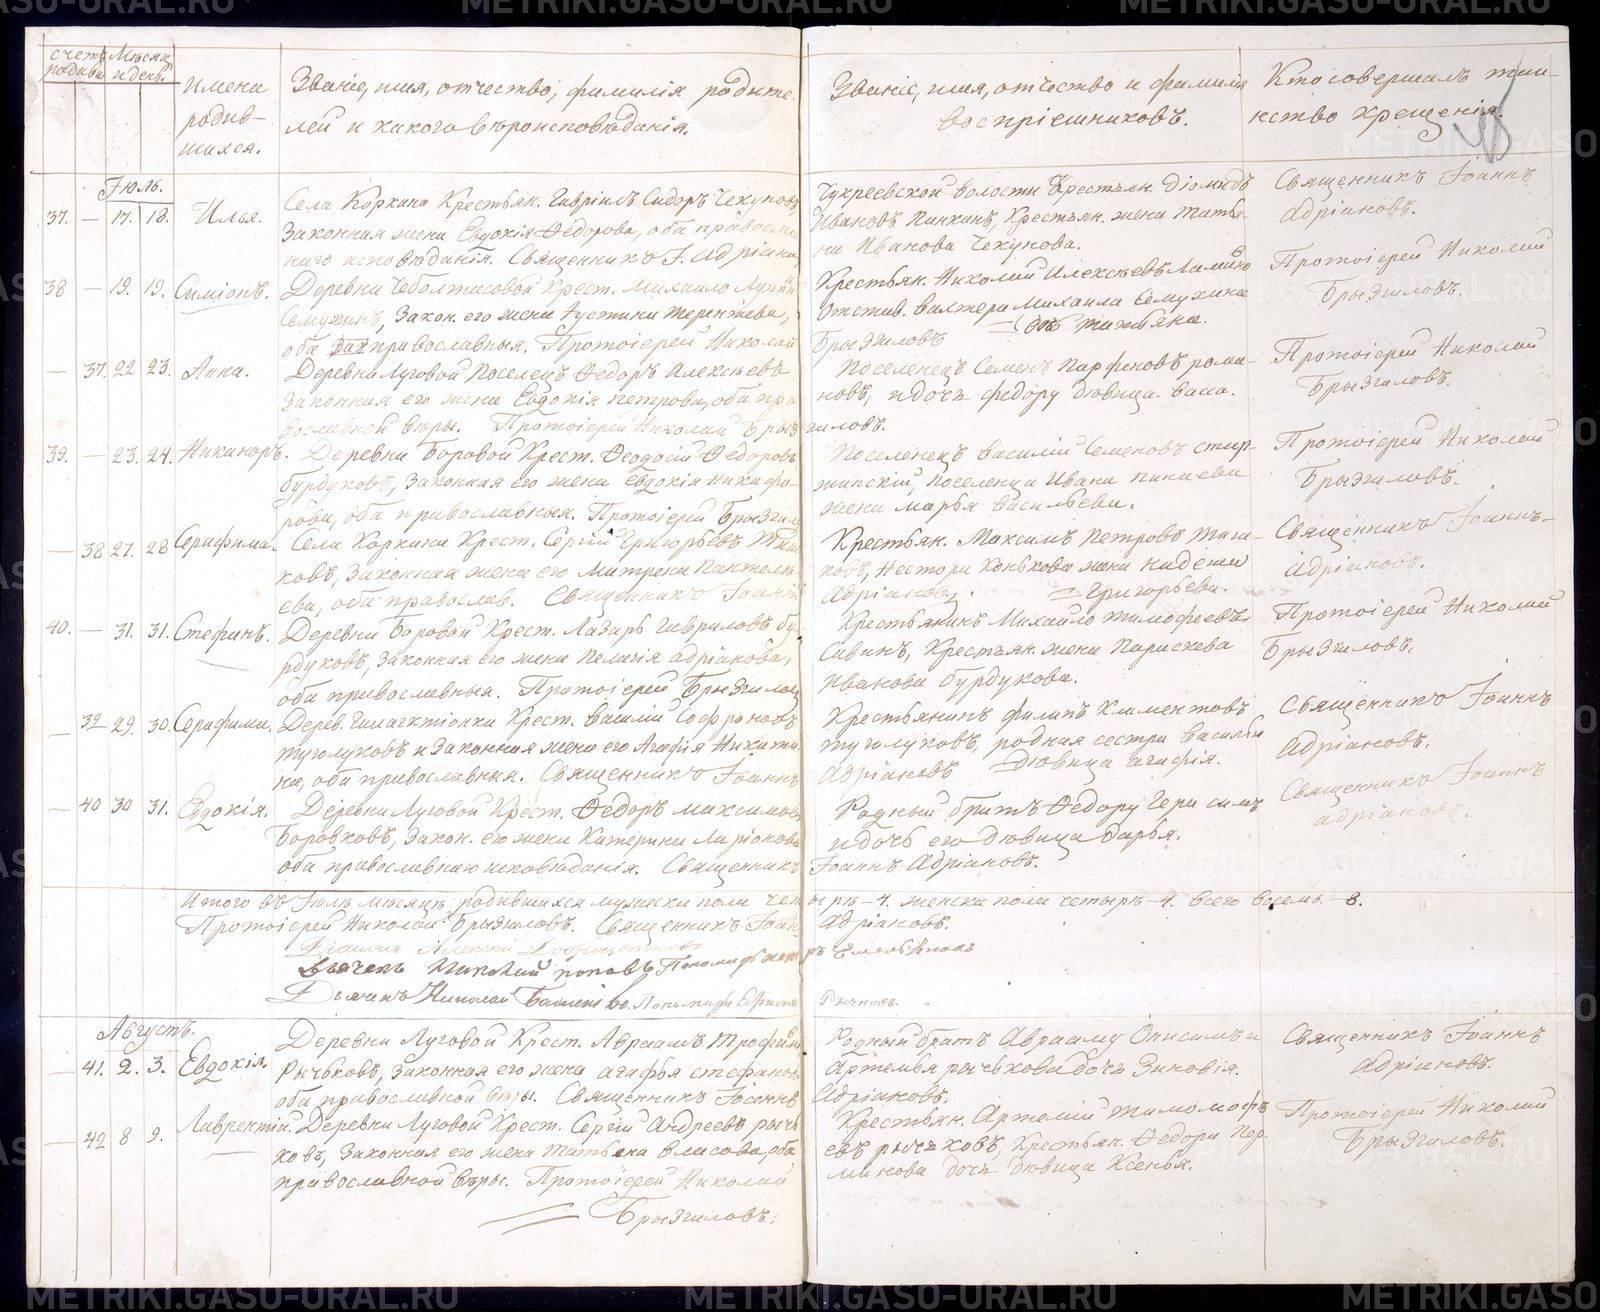 METRIKI.GASO-URAL.RU
счетъ родивш.
Мѣсяц. и день.
имена родив-
шихся.
Званіе, имя, отчество, фамилія родите-
лей и какого вѣроисповѣданія.
Званіе, имя, отчество и фамилія
воспріемниковъ.
Кто совершалъ таи-
нство крещенія.
Іюль.
37. — 17. 18. Илья.
Села Коркина Крестьян. Гавріилъ Сидоръ Чекуновъ,
Законная жена Евдокія Ѳедорова, оба православ
наго исповѣданія. Священникъ І. Адріано
Чукреевской волости Крестьян. Діомидъ
Ивановъ Панкинъ, Крестьян. жена Татья-
на Иванова Чекунова.
Священникъ Іоаннъ
Адріановъ.
38 — 19. 19. Симіонъ.
Крест. Михаило
Семухинъ, Закон. его жена Іустина Терентьева,
оба православныя. Протоіерей Николай
Крестьян. Николай Алексѣевъ
Отстав. вахтера Михаила Семухина
дочь Татьяна.
Брызгаловъ
Протоіерей Николай
Брызгаловъ.
— 37. 22 23. Анна.
Деревни Луговой Поселецъ Ѳедоръ Алексѣевъ
Законная его жена Евдокія Петрова, оба пра
вославной вѣры. Протоіерей Николай Брыз
Поселенецъ Семенъ Парфеновъ рома-
новъ, и дочь Федору дѣвица Васса.
галовъ.
Протоіерей Николай
Брызгаловъ.
39. — 23. 24. Никаноръ.
Деревни Боровой Крест. Ѳеодосій Ѳедоровъ
Бурдуковъ, Законная его жена Евдокія Никифо-
рова, оба православныя. Протоіерей Брызгало
Поселенецъ Василій Семеновъ
Поселенца Ивана Пинаева
жена Марья Васильева.
Протоіерей Николай
Брызгаловъ.
— 38 27. 28 Серафима.
Села Коркина Крест. Сергій Григорьевъ
ковъ, Законная жена его Матрена Пантелѣ-
ева, оба православ. Священникъ Іоаннъ
Крестьян. Максимъ Петровъ
ковъ, Нестора Конькова жена Надежда
Адріановъ. Григорьева.
Священникъ Іоаннъ
Адріановъ.
40. — 31. 31. Стефанъ.
Деревни Боровой Крест. Лазарь Гавриловъ Бу-
рдуковъ, Законная его жена Пелагія Адріанова,
оба православныя. Протоіерей Брызгаловъ
Крестьянинъ Михайло Тимофеевъ
Савинъ, Крестьян. жена Параскева
Иванова Бурдукова.
Протоіерей Николай
Брызгаловъ.
— 39 29. 30. Серафима.
Дерев. Крест. Василій Софроновъ
Туголуковъ и Законная жена его Агафія Никити-
на, оба православныя. Священникъ Іоаннъ
Крестьянинъ Филипъ Климентовъ
Туголуковъ, родная сестра Василья
Адріановъ Дѣвица Агафія.
Священникъ Іоаннъ
Адріановъ.
— 40 30 31. Евдокія.
Деревни Луговой Крест. Ѳедоръ Максимовъ
Боровковъ, Закон. его жена Катерина Ларіонова
оба православнаго исповѣданія. Священникъ
Родный братъ Ѳедору Герасимъ
и дочь его Дѣвица Дарья.
Іоаннъ Адріановъ.
Священникъ Іоаннъ
Адріановъ.
Итого въ Іюль мѣсяцѣ родившихся мужска пола чет
ыре — 4. женска пола четыре — 4. всего восемь. — 8.
Протоіерей Николай Брызгаловъ. Священникъ Іоанн
Адріановъ.
Діаконъ Алексій
Дьячекъ Николай Поповъ Пономарь
ръ Емельяновъ
Дьячекъ Николай Пономарь Ефимъ
Рычковъ.
Августъ.
— 41. 2. 3. Евдокія.
Деревни Луговой Крест. Авраамъ Трофимо
Рычьковъ, Законная его жена Агафья Стефанова
оба православной вѣры. Священникъ Іоаннъ
Родный братъ Аврааму Онисимъ и
Артемья Рычькова дочь Зиновія.
Адріановъ.
Священникъ Іоаннъ
Адріановъ.
— 42 8 9. Лаврентій.
Деревни Луговой Крест. Сергій Андреевъ Рычь-
ковъ, Законная его жена Татьяна Власова, оба
православной вѣры. Протоіерей Николай
Брызгаловъ.
Крестьян. Артемій
евъ Рычьковъ, Крестьян. Ѳедора Пер-
минова дочь дѣвица Ксенья.
Протоіерей Николай
Брызгаловъ.
METRIKI.GASO-URAL.RU